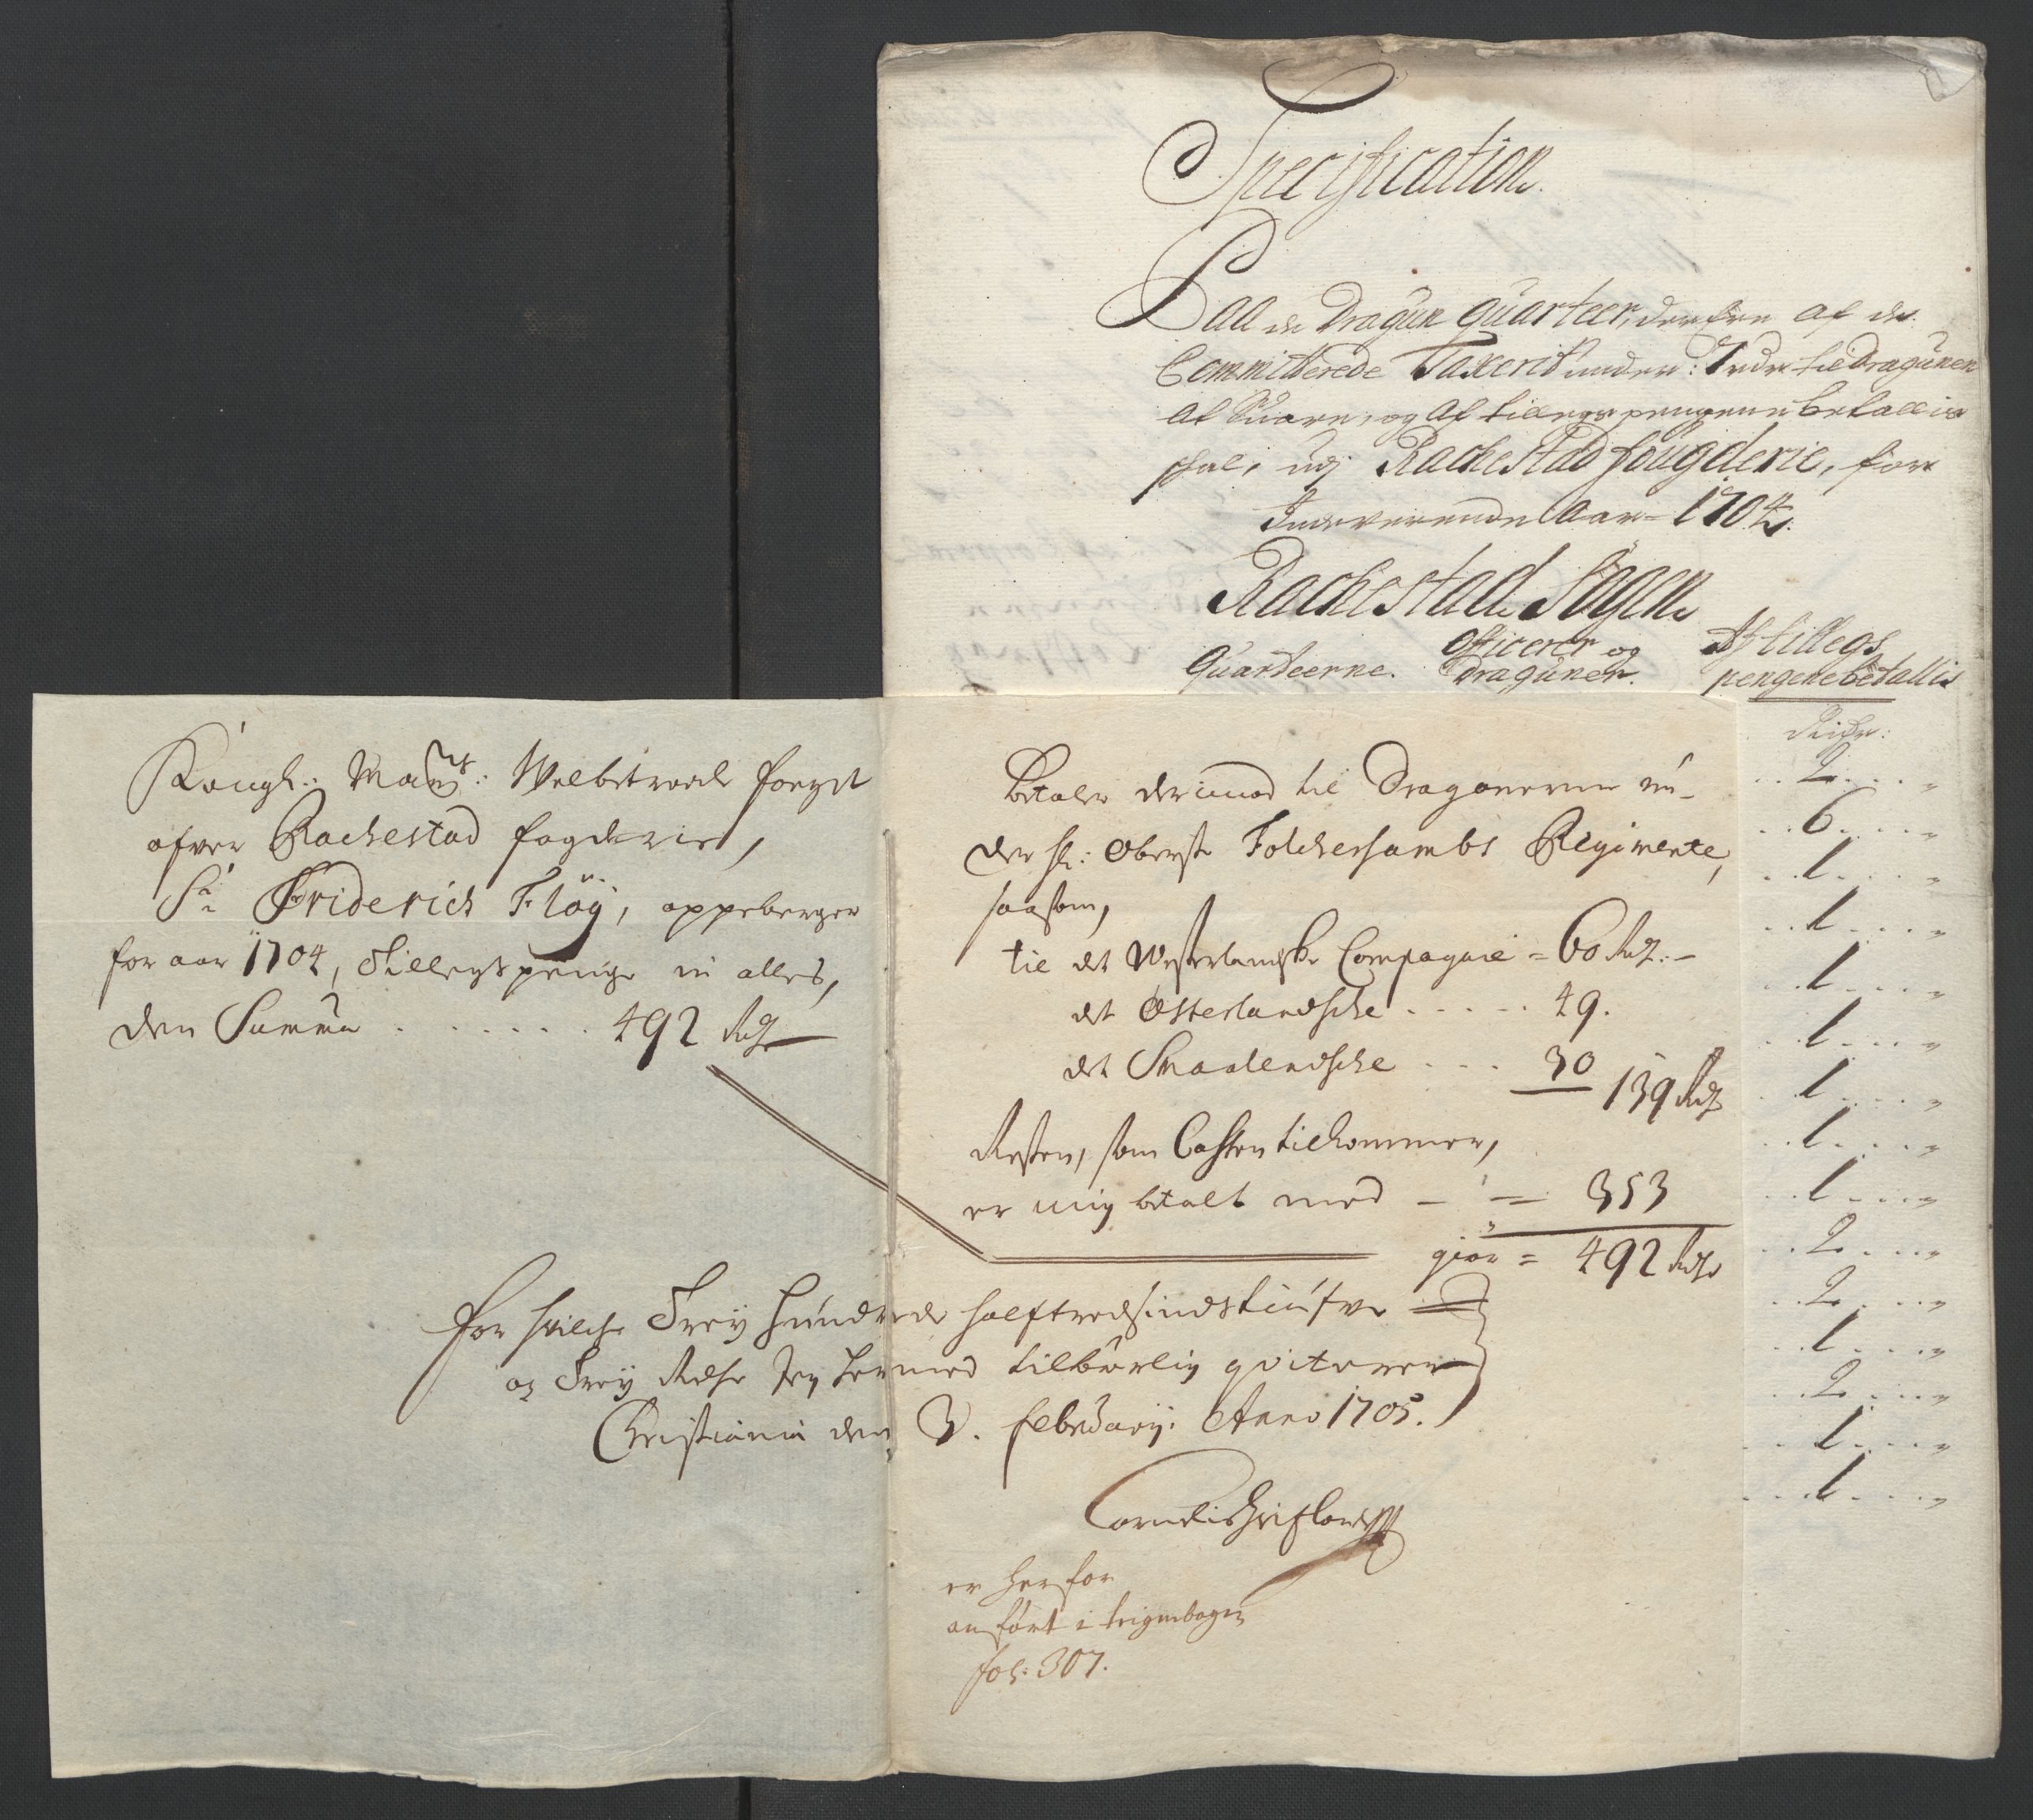 Specification.
Paa de Dragun quarteer, der ere af de
Committerede Taxerit under: 7 rdr til Dragunen
at Suare, og af tillegs pengene betallis
skal, udj Rachestad fougderie, for
Indeverende Aar 1704.
Rachestad Sogen
Quarteerne. Officerer og Draguner. Af tillegs pengene betallis
Rixdr:
. . 2 . . . „
. . 6 . . . „
. . 1 . . . „
. . 1 . . . „
. . 1 . . . „
. . 1 . . . „
. . 1 . . . „
. . 1 . . . „
. . 1 . . . „
. . 2 . . . „
. . 2 . . . „
. . 1 . . . „
. . 2 . . . „
. . 1 . . . „
. . 1 . . . „
Kongl: Mayts: Welbetroede foegt
ofver Rachestad fogderie,
Sr Friderich Flöy, oppeberger
for aar 1704, Tillegspenge in alles,
den Summa . . . . . . 492 Rdr
betaler derimod til Dragonerne un-
der Hr: Oberst Folchersambs Regimente,
saasom,
til det Westerlandske Compagnie = 60 Rdr: -
det Osterlandsche . . . . . 49.
det Smaalendsche . . . 30
139 Rdr
Resten, som Cassen tilkommer,
er mig betalt med - = 353
giør = 492 Rdr
for hvilche Trey hundrede halftredsindstiufve
og Trey Rdhr Jeg hermed tilbørlig qviterer
Christiania den 3. februarij. Anno 1705.
er herfor
anført i trignbogen
fol: 307.